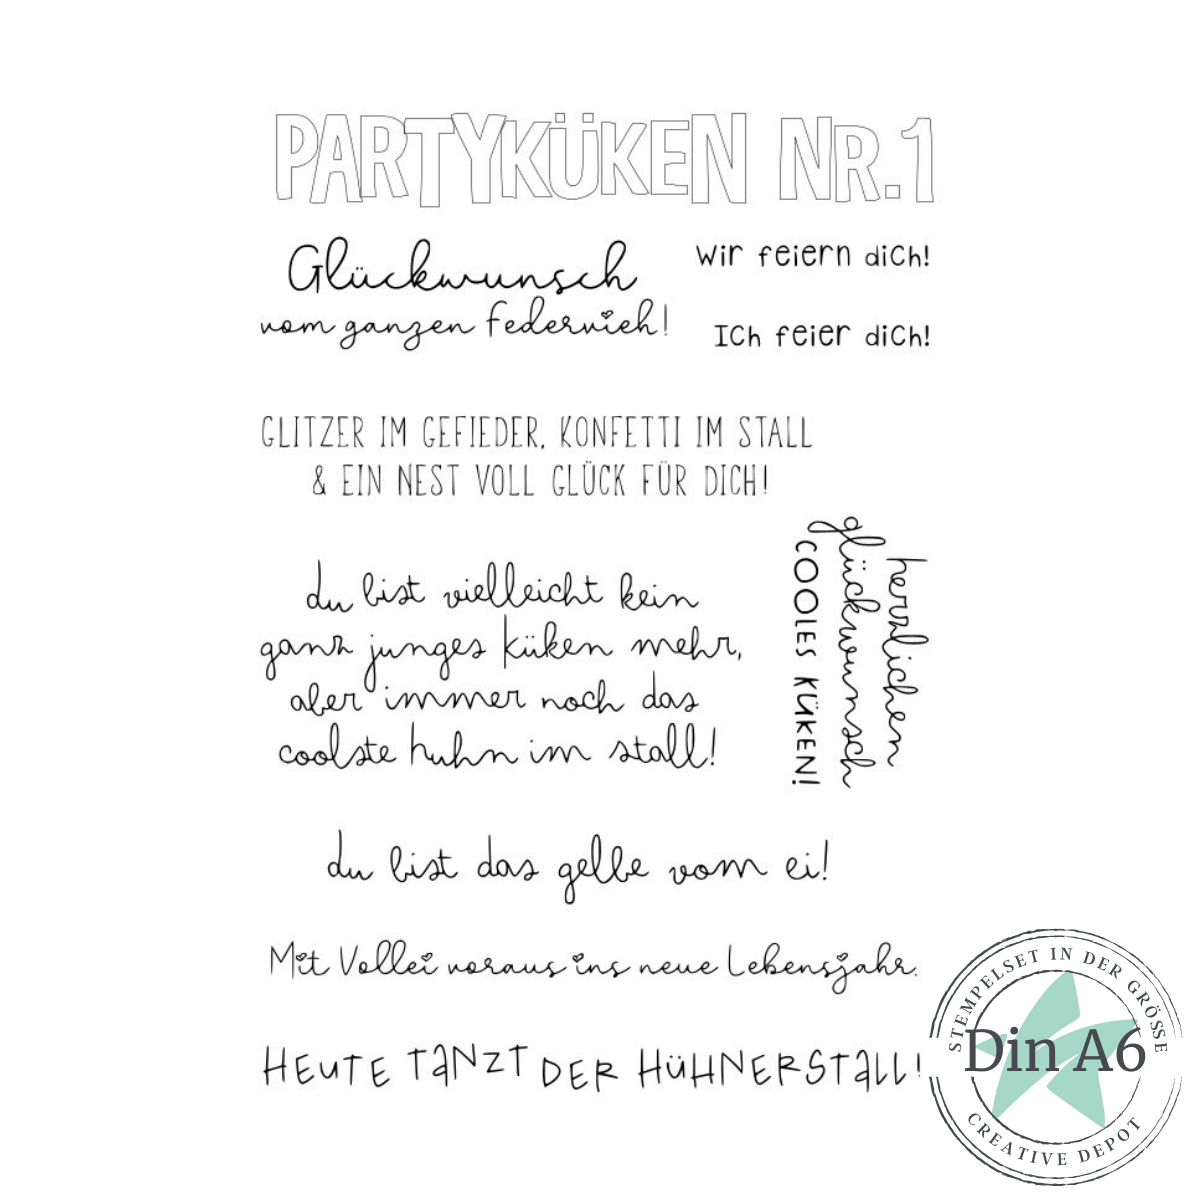 PARTYKÜKEN NR.1
Glückwunsch
vom ganzen Federvieh!
Wir feiern dich!
Ich feier dich!
GLITZER IM GEFIEDER, KONFETTI IM STALL
& EIN NEST VOLL GLÜCK FÜR DICH!
du bist vielleicht kein
ganz junges küken mehr,
aber immer noch das
coolste huhn im stall!
herzlichen
glückwunsch
COOLES KÜKEN!
du bist das gelbe vom ei!
Mit Vollei voraus ins neue Lebensjahr.
HEUTE TANZT DER HÜHNERSTALL!
STEMPELSET IN DER GRÖSSE
Din A6
CREATIVE DEPOT